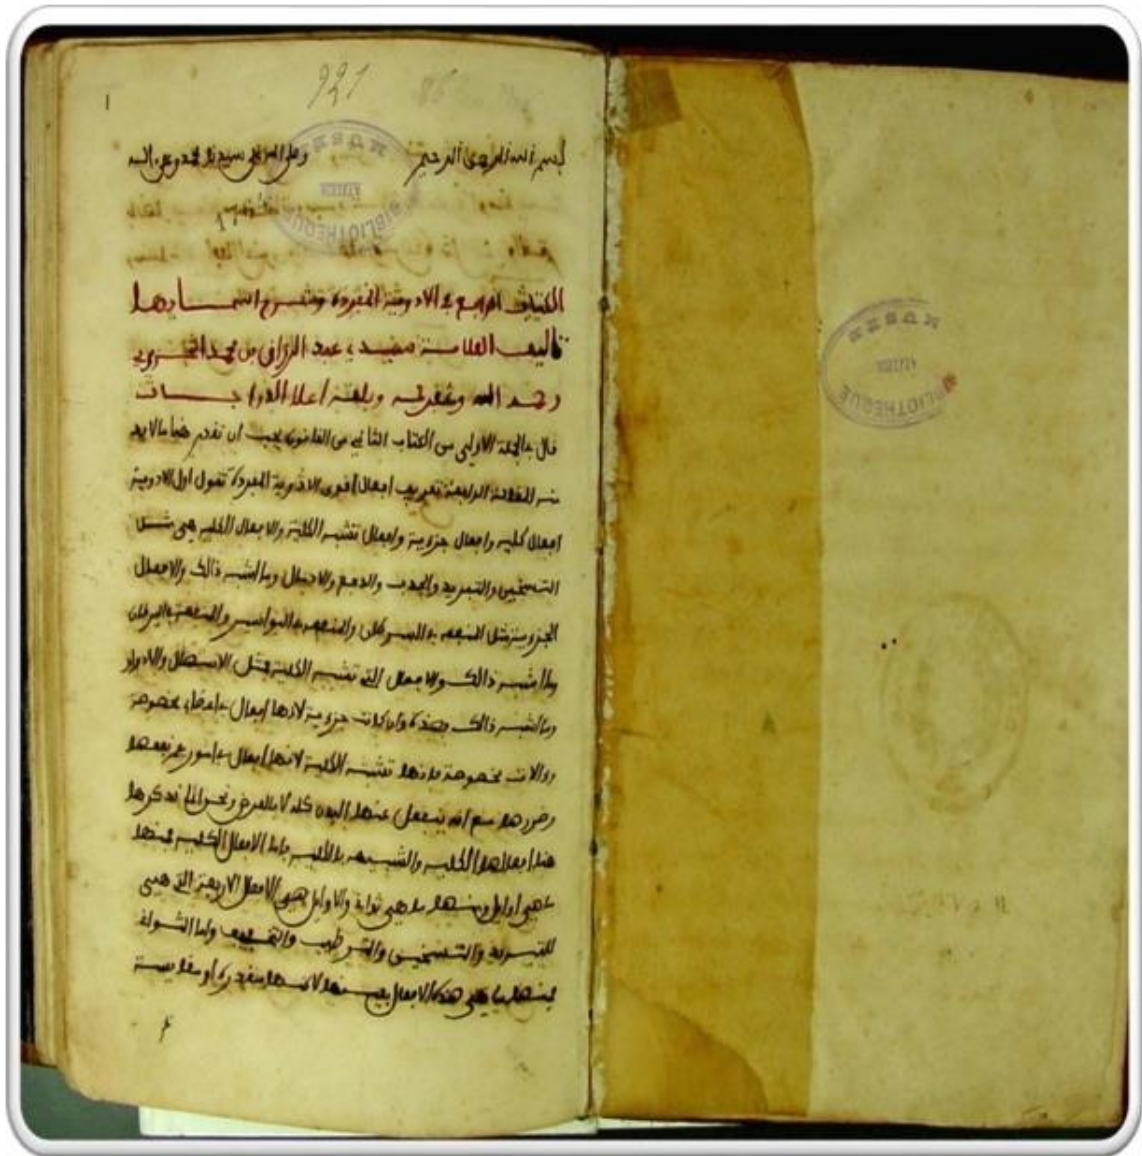 921
1
بسم الله الرحمن الرحيم وصلى الله على سيدنا محمد وعلى اله
الكتاب الرابع في الادوية المفردة وتفسير اسمايها
تاليف العلامة سيدي عبد الرزاق بن محمد الجزيري
رحمه الله وغفر له وبلغه اعلا الدرجات
قال في الجملة الاولى من الكتاب الثاني من القانون يجب ان
المقالة الرابعة تعريف افعال قوى الادوية المفردة نقول اول الادوية
افعال كلية وافعال جزوية وافعال تشبه الكلية والافعال الكلية هي مثل
التسخين والتبريد والجذب والدفع والادمال وما اشبه ذالك والافعال
الجزوية مثل المنفعة في السرطان والمنفعة في البواسير والمنفعة في اليرقان
وما اشبه ذالك والافعال التي تشبه الكلية مثل الاسهال والادرار
وما اشبه ذالك فهذه وان كانت جزوية لانها افعال في اعضاء مخصوصة
والات مخصوصة فانها تشبه الكلية لانها افعال في امور عم نفعها
وضررها مع انه ينفعل عنها البدن كله لا بالعرض ونحن انما نذكر
هنا افعالها الكلية والشبيهة بالكلية فاما الافعال الكلية فمنها
ما هي اوايل ومنها ما هي ثوان والاوايل هي الافعال الاربعة التي هي
التبريد والتسخين والترطيب والتجفيف واما الثواني
فمنها ما هي هذه الافعال بعينها لاكنها مقدرة او مقايسة
BIBLIOTHEQUE
BIBLIOTHEQUE